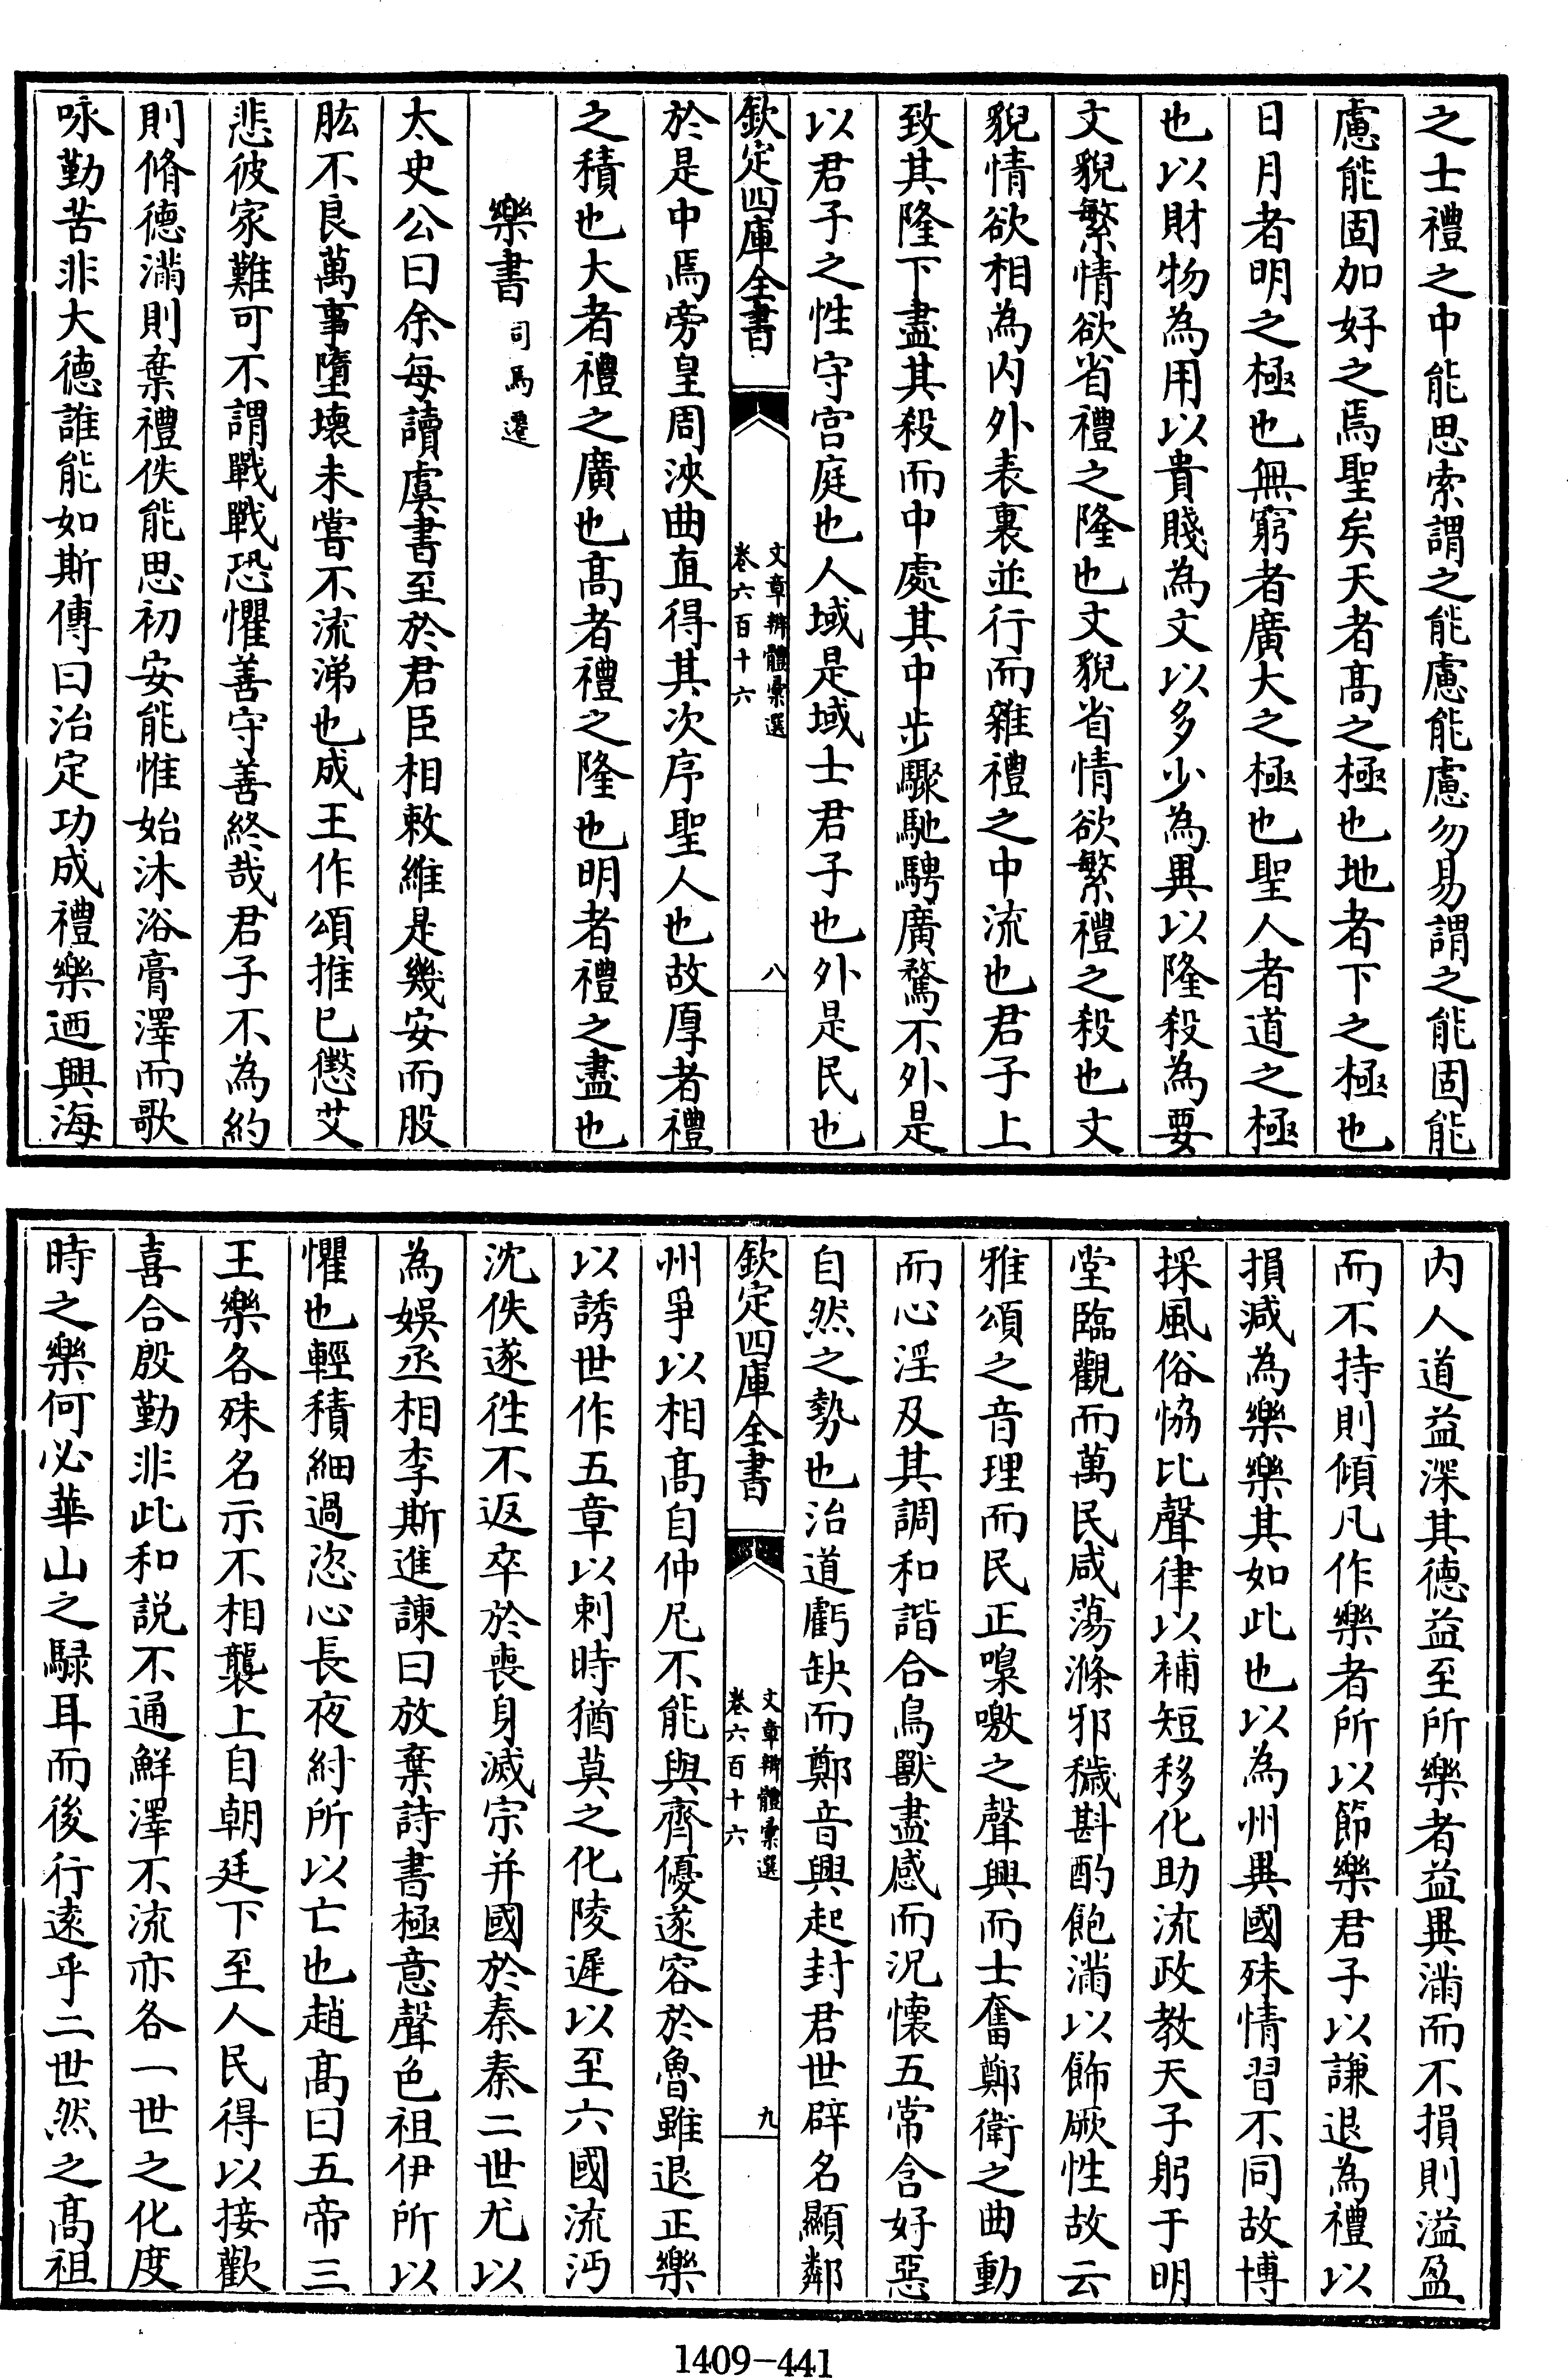 之士禮之中能思索謂之能慮能慮勿易謂之能固能
慮能固加好之焉聖矣天者髙之極也地者下之極也
日月者明之極也無窮者廣大之極也聖人者道之極
也以財物為用以貴賤為文以多少為異以隆殺為要
文貌繁情欲省禮之隆也文貌省情欲繁禮之殺也文
貌情欲相為内外表裏並行而雜禮之中流也君子上
致其隆下盡其殺而中處其中步驟馳騁廣騖不外是
以君子之性守宫庭也人域是域士君子也外是民也
欽定四庫全書
文章辨體彙選
卷六百十六
八
於是中焉旁皇周浹曲直得其次序聖人也故厚者禮
之積也大者禮之廣也髙者禮之隆也明者禮之盡也
樂書司馬遷
太史公曰余每讀虞書至於君臣相敕維是幾安而股
肱不良萬事墮壞未嘗不流涕也成王作頌推已懲艾
悲彼家難可不謂戰戰恐懼善守善終哉君子不為約
則脩德滿則棄禮佚能思初安能惟始沐浴膏澤而歌
咏勤苦非大德誰能如斯傳曰治定功成禮樂迺興海
内人道益深其德益至所樂者益異滿而不損則溢盈
而不持則傾凡作樂者所以節樂君子以謙退為禮以
損減為樂樂其如此也以為州異國殊情習不同故博
採風俗恊比聲律以補短移化助流政教天子躬于明
堂臨觀而萬民咸蕩滌邪穢斟酌飽滿以飾厥性故云
雅頌之音理而民正嘄噭之聲興而士奮鄭衛之曲動
而心淫及其調和諧合鳥獸盡感而況懷五常含好惡
自然之勢也治道虧缺而鄭音興起封君世辟名顯鄰
欽定四庫全書
文章辨體彙選
卷六百十六
九
州爭以相髙自仲尼不能與齊優遂容於魯雖退正樂
以誘世作五章以刺時猶莫之化陵遲以至六國流沔
沈佚遂徃不返卒於喪身滅宗并國於秦秦二世尤以
為娯丞相李斯進諫曰放棄詩書極意聲色祖伊所以
懼也輕積細過恣心長夜紂所以亡也趙髙曰五帝三
王樂各殊名示不相襲上自朝廷下至人民得以接歡
喜合殷勤非此和説不通鮮澤不流亦各一世之化度
時之樂何必華山之騄耳而後行逺乎二世然之髙祖
1409-441